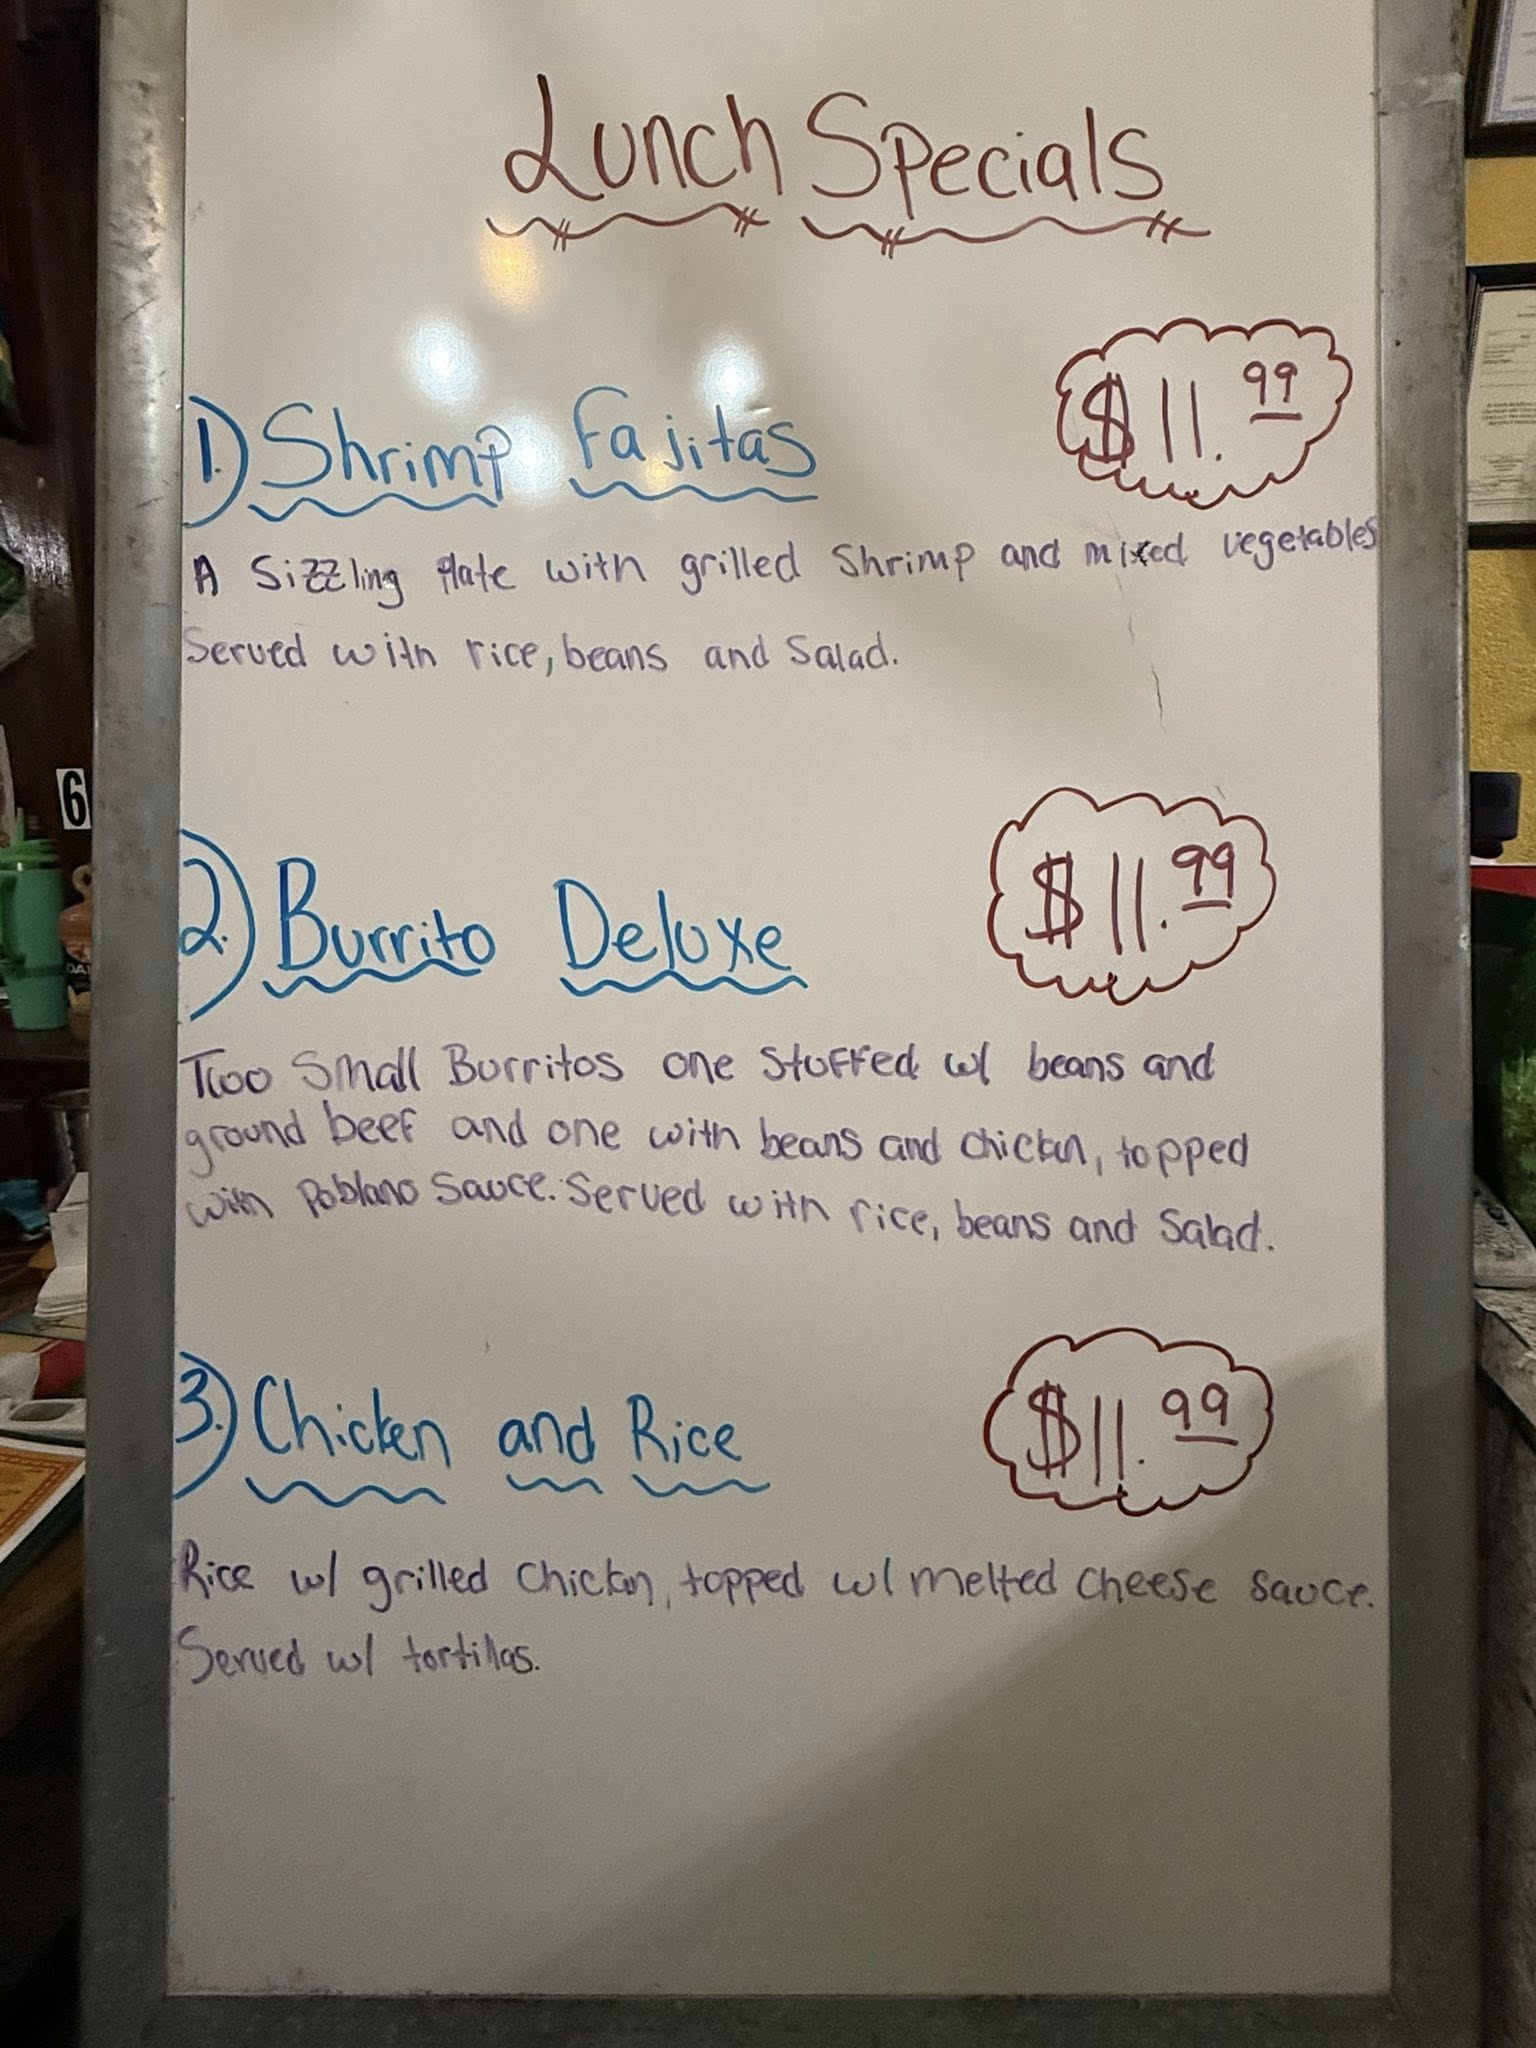 Lunch Specials
1.) Shrimp Fajitas
$11.99
A Sizzling Plate with grilled Shrimp and mixed vegetables
Served with rice, beans and Salad.
6
2.) Burrito Deluxe
$11.99
Two Small Burritos one Stuffed w/ beans and
ground beef and one with beans and chicken, topped
with Poblano Sauce. Served with rice, beans and Salad.
3.) Chicken and Rice
$11.99
Rice w/ grilled chicken, topped w/ melted cheese sauce.
Served w/ tortillas.